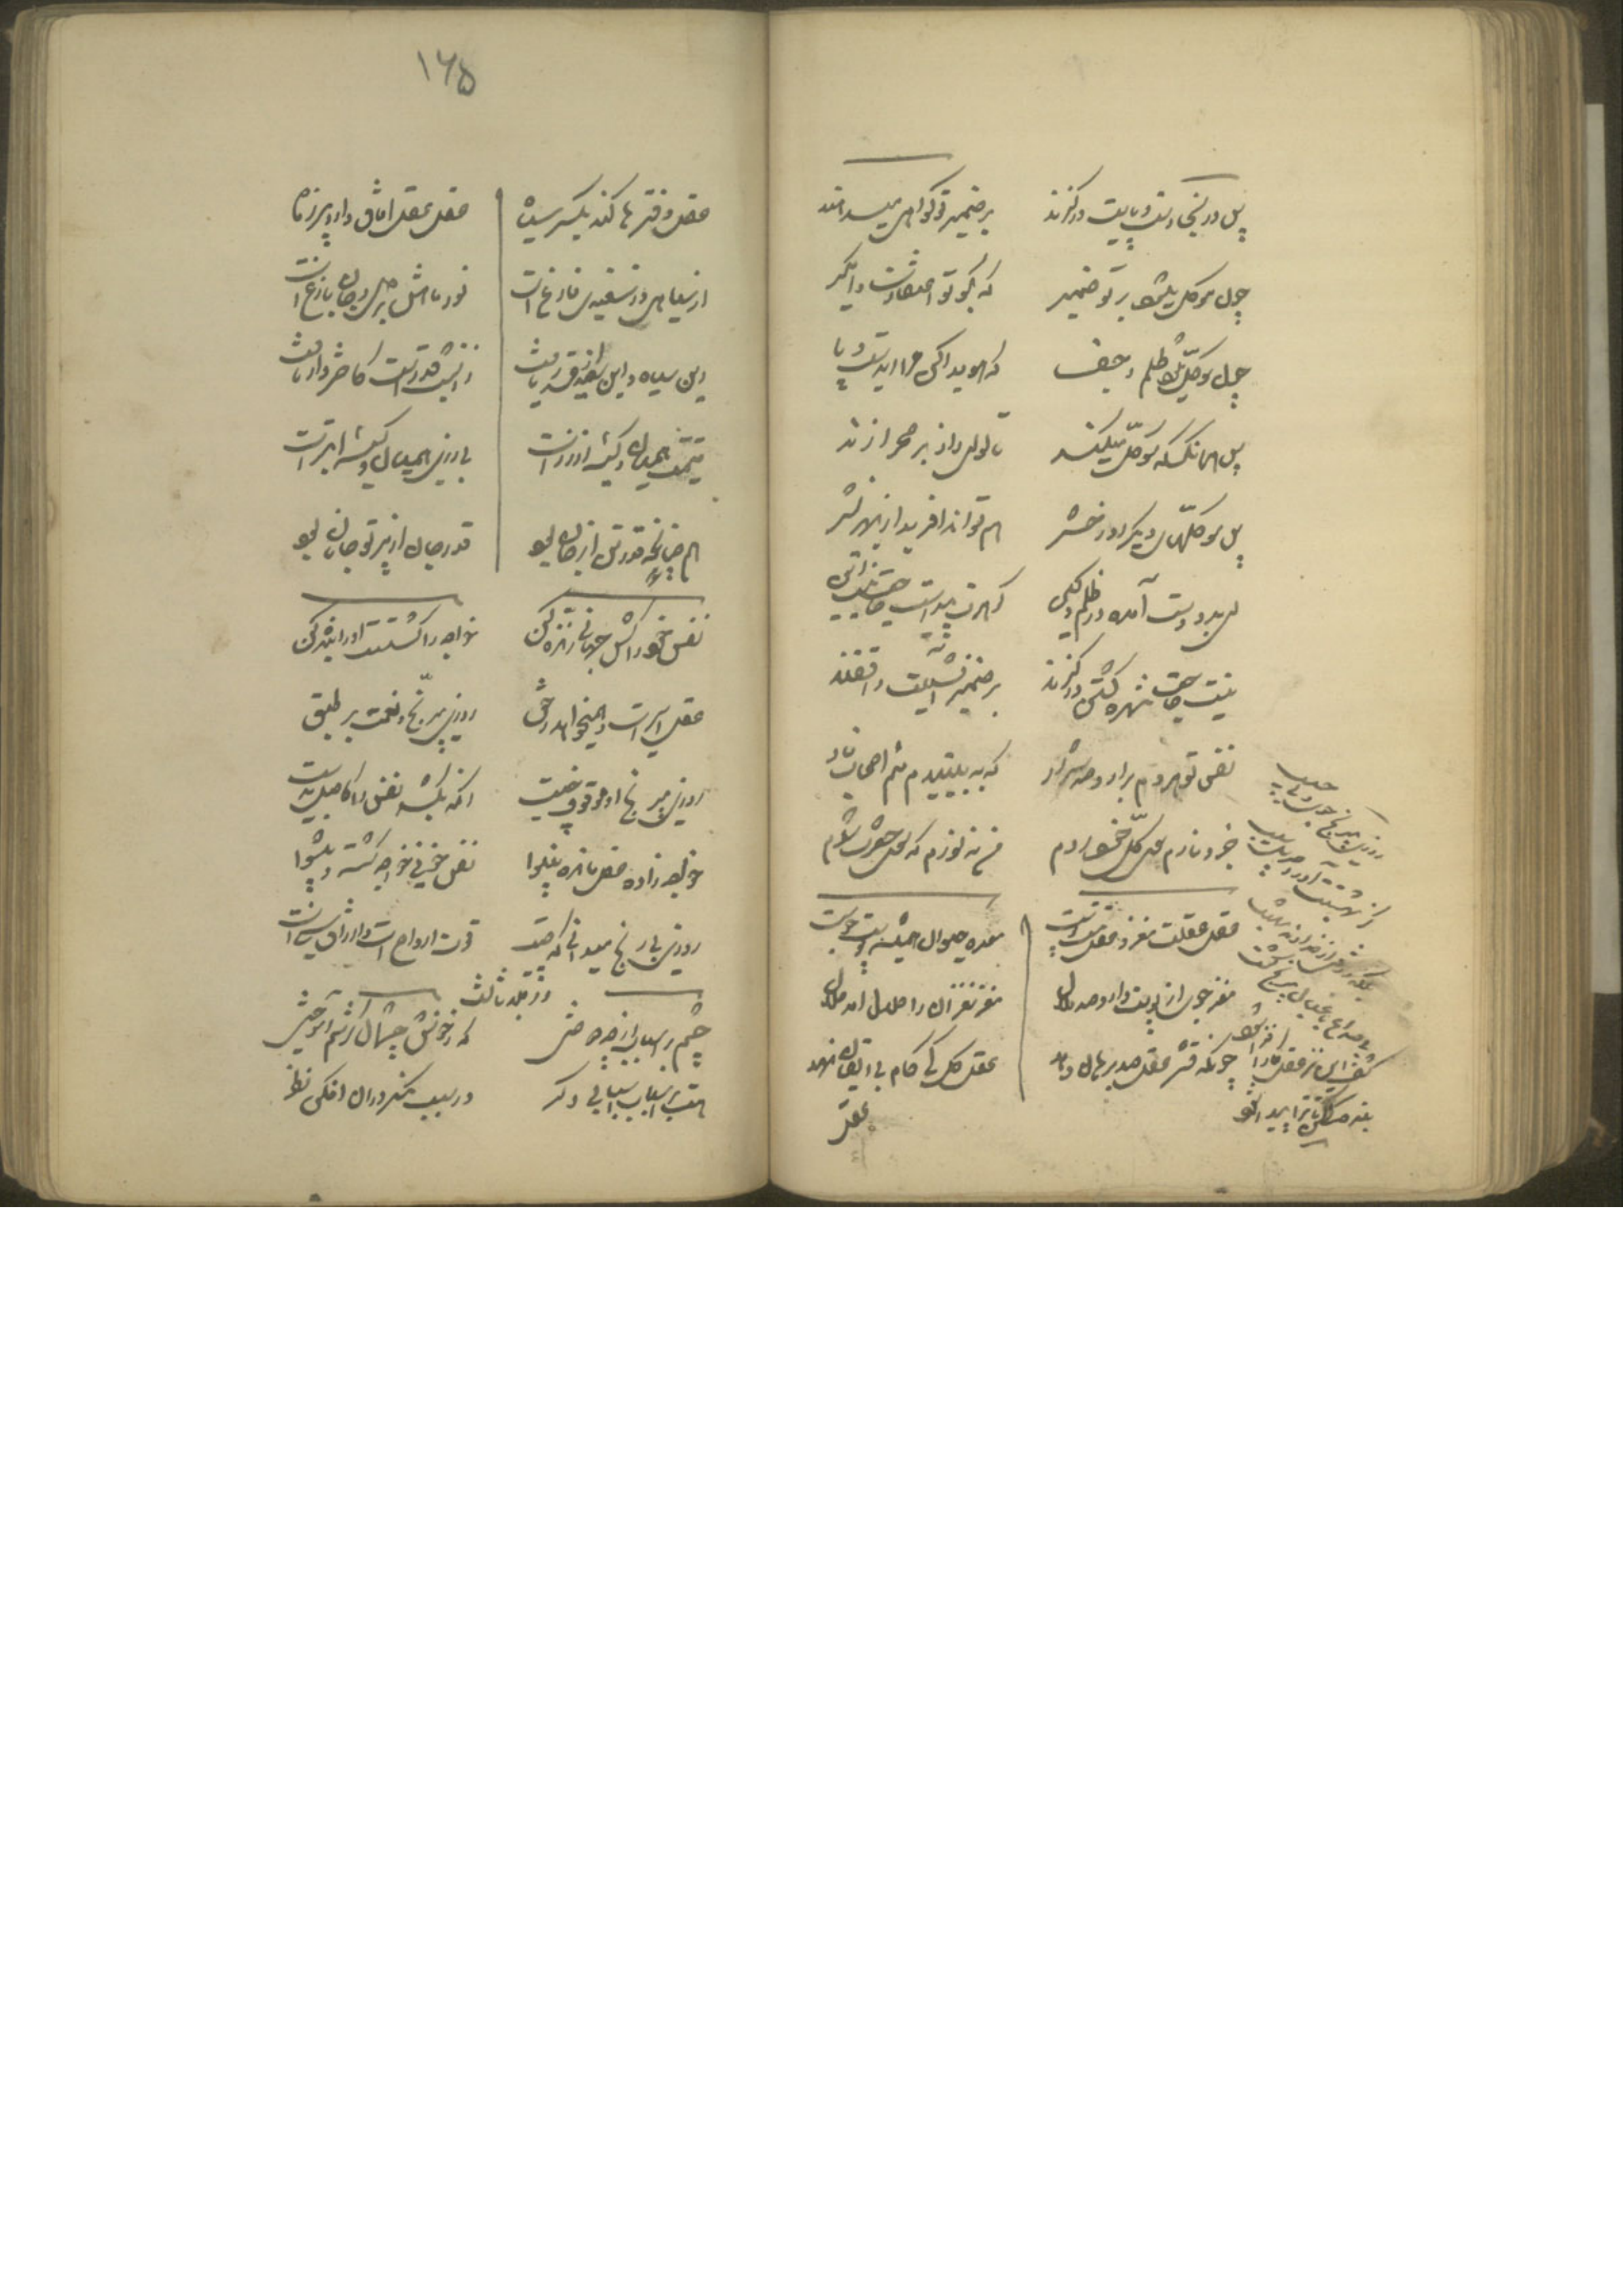 پس در اینجا دست و پایت در گزند
بر ضمیر تو گواهی میدهند
چون موکل میشود بر تو ضمیر
که بگو تو اعتقادت وامگیر
چون موکل میشود ظلم و جفا
که هویدا کن مرا ای دست و پا
پس همانکس که موکل میکند
تا لوای راز بر صحرا زند
پس موکلهای دیگر روز حشر
هم تواند آفرید از بهر نشر
ای بده دست آمده در ظلم و کین
گوهرت پیداست حاجت نیست این
نیست حاجت شهره گشتن در گزند
بر ضمیر آتشینت واقفند
نفس تو هر دم برآرد صد شرار
که ببینیدم منم اصحاب نار
جزو نارم سوی کل خود روم
من نه نورم که سوی حضرت شوم
عقل عقلت مغز و عقل تست پوست
معده حیوان همیشه پوست جوست
مغز جوی از پوست دارد صد ملال
مغز نغزان را حلال آمد حلال
چونکه قشر عقل صد برهان دهد
عقل کل کی گام بی ایقان نهد
عقل
روزی بی رنج جو و بی حسیب
کز بهشتت آورد جبریل سیب
بلکه رزقی از خداوند بهشت
بی صداع باغبان بی رنج کشت
۱۶۵
عقل دفترها کند یکسر سیاه
عقل عقل آفاق دارد پر ز ماه
از سیاهی وز سفیدی فارغ است
نور ماهش بر دل و جان بازغ است
این سیاه و این سفید ار قدر یافت
زان شب قدر است کاختروار تافت
قیمت همیان و کیسه از زر است
بی ز زر همیان و کیسه ابتر است
همچنانکه قدر تن از جان بود
قدر جان از پرتو جانان بود
نفس خود را کش جهانی زنده کن
خواجه را کشتست او را بنده کن
عقل اسیر است و همیخواهد ز حق
روزی بی رنج و نعمت بر طبق
روزی بی رنج او موقوف چیست
آنکه بکشد نفس را کاصل بدیست
خواجه زاده عقل مانده بینوا
نفس خونی خواجه گشته و پیشوا
روزی بی رنج میدانی که چیست
قوت ارواح است و ارزاق نبیست
در جلد ثالث
چشم بر اسباب از چه دوختیم
که ز خوش چشمان کرشم آموختیم
هست بر اسباب اسبابی دگر
در سبب منگر در آن افکن نظر